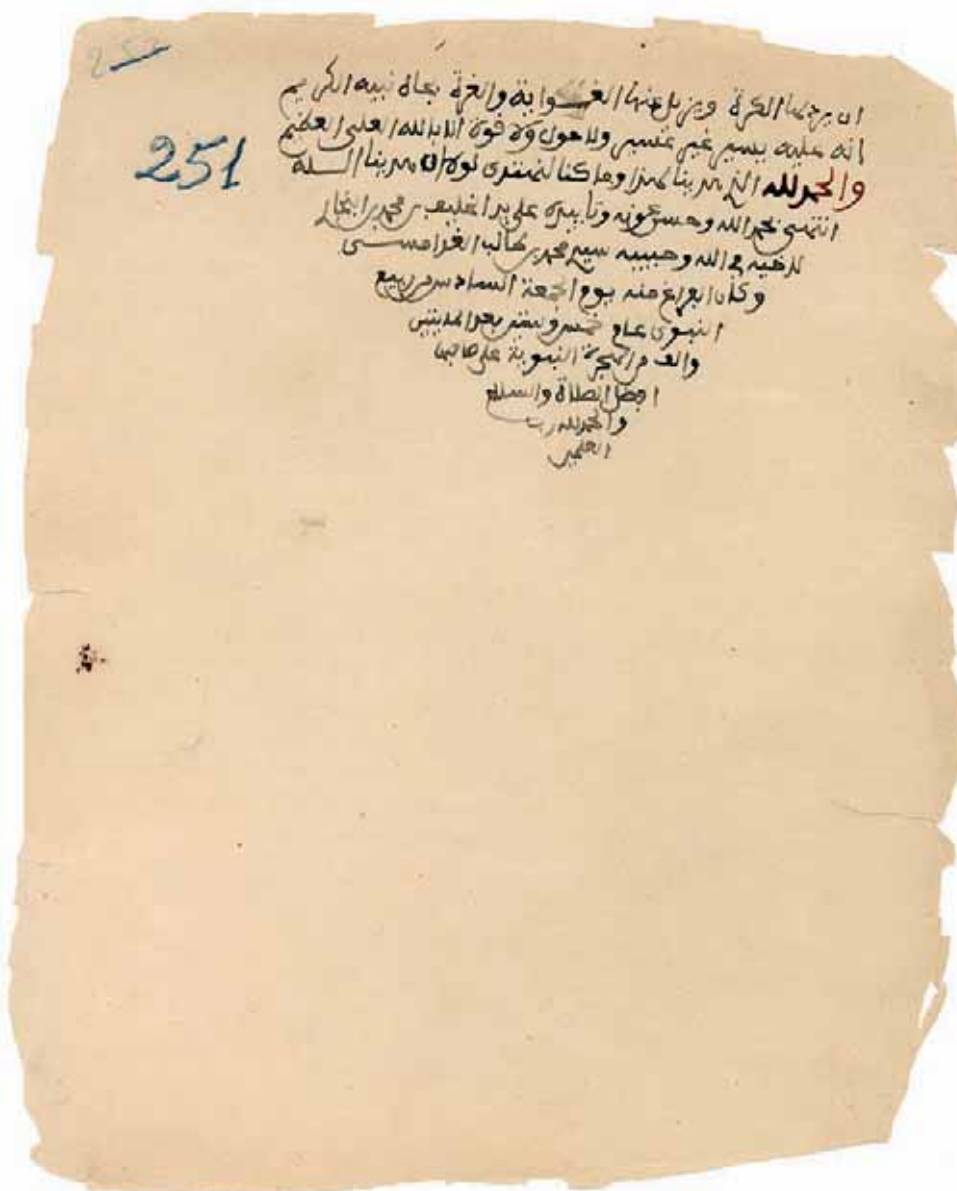 251
ان يرحمها الكرة ويزيل عنها الغواية والغرة بجاه نبيه الكريم
انه عليه يسير غير عسير ولا حول ولا قوة الا بالله العلي العظيم
والحمد لله الذي هدينا لهذا وما كنا لنهتدي لولا ان هدينا الله
انتهى بحمد الله وحسن عونه وتاييده على يد محمد بن
لاخيه في الله وحبيبه سيدي محمد بن طالب الغدامسي
وكان الفراغ منه يوم الجمعة السادس من ربيع
النبوي عام خمس وعشر بعد المايتين
والف من الهجرة النبوية على صاحبها
افضل الصلاة والسلام
والحمد لله رب
العلمين